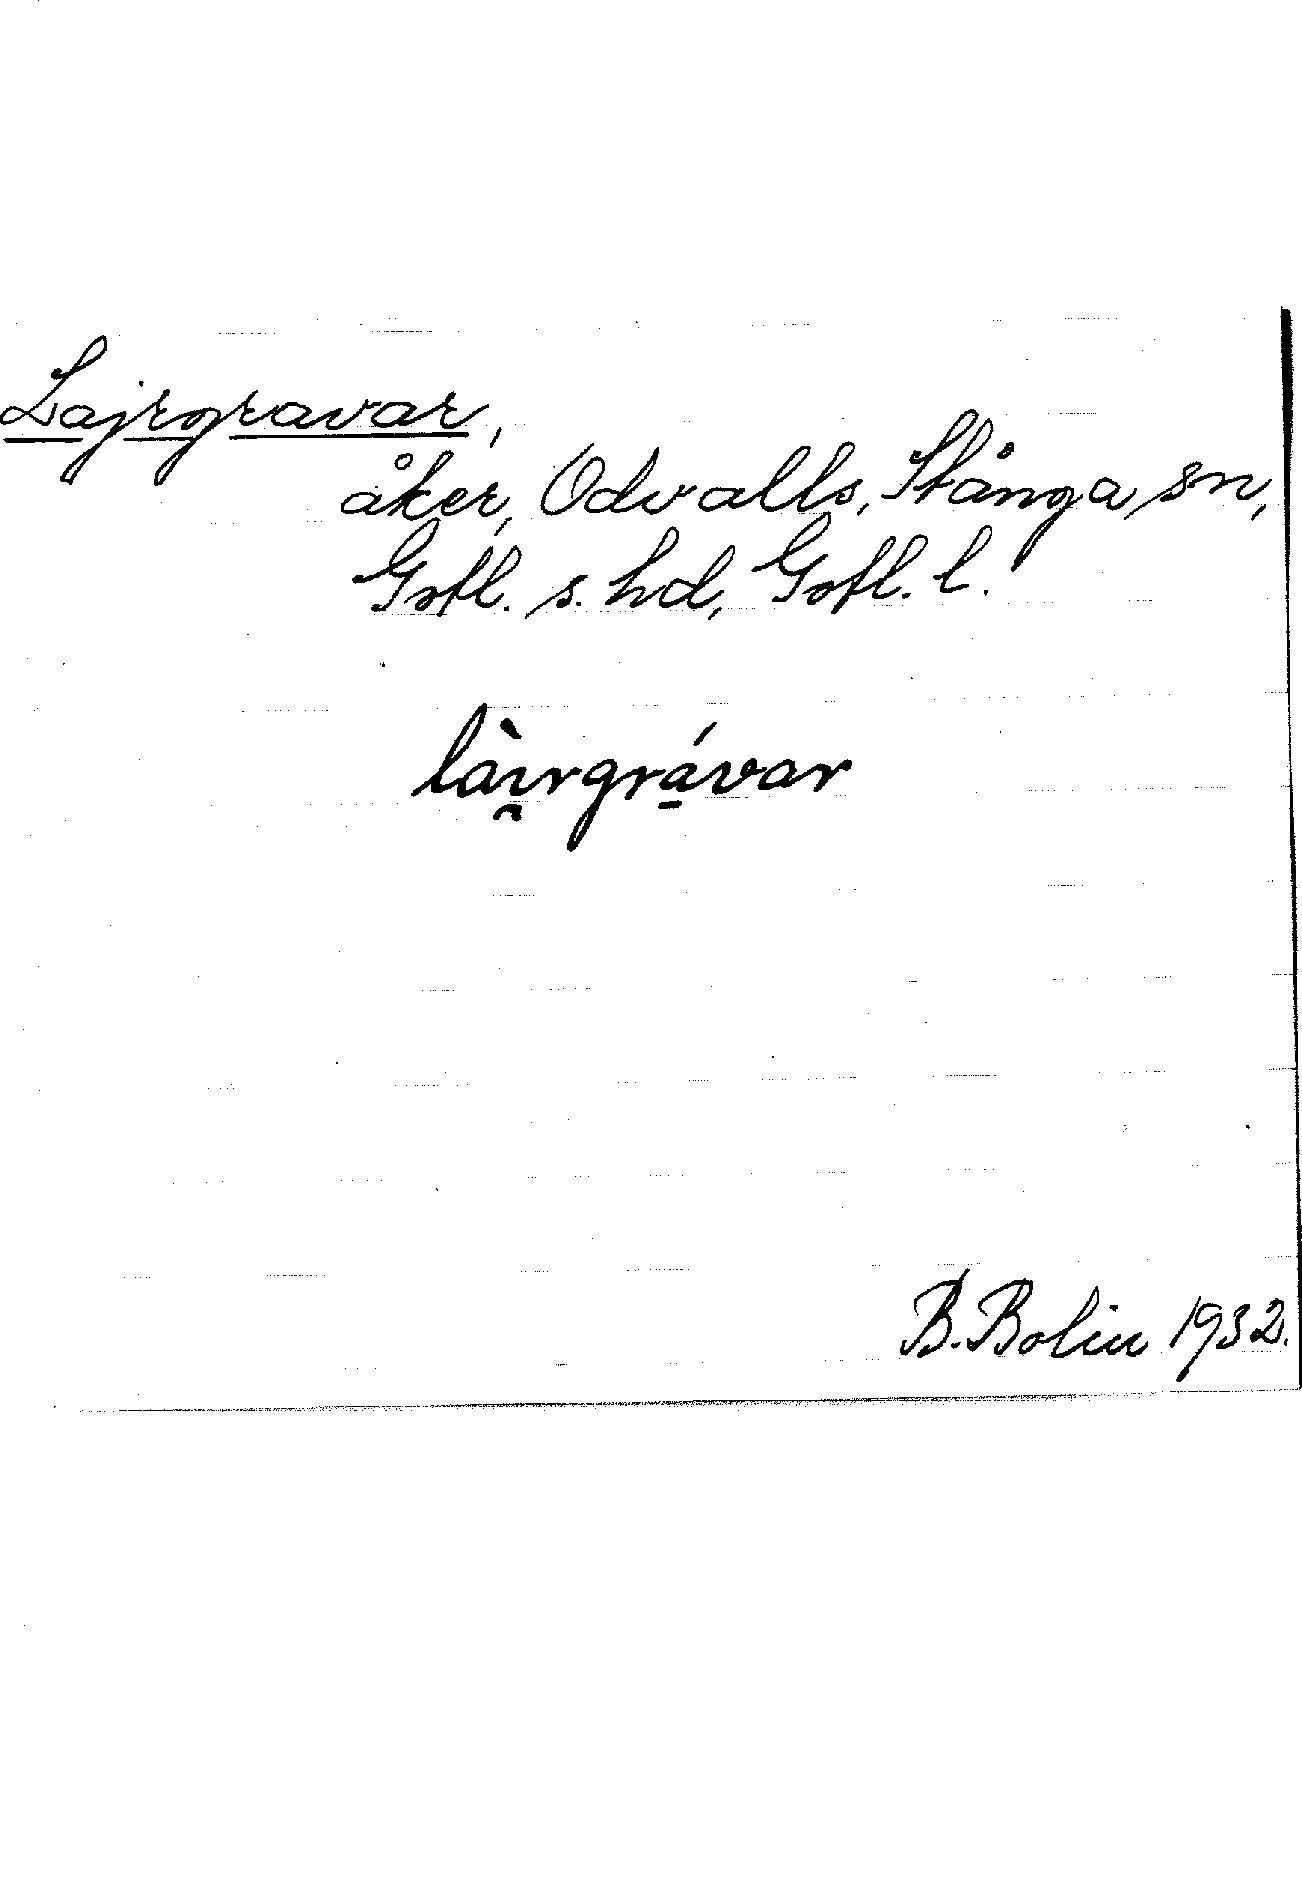 Lajrgravar,
åker, Odvalls, Stånga sn,
Gotl. s. hd, Gotl. l.
làı̯rgrá̱var
B. Bolin 1932.